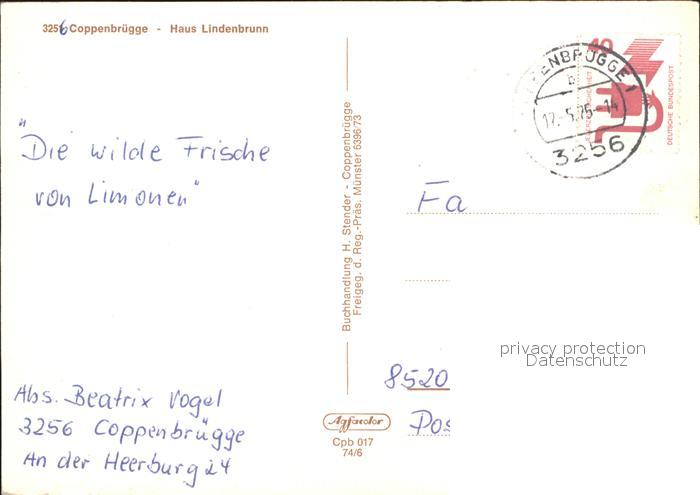 3256 Coppenbrügge - Haus Lindenbrunn
"Die wilde Frische
von Limonen"
Abs. Beatrix Vogel
3256 Coppenbrügge
An der Heerburg 24
Buchhandlung H. Stender - Coppenbrügge
Freigeg. d. Reg.-Präs. Münster 6396/73
Agfacolor
Cpb 017
74/6
40
JEDERZEIT SICHERHEIT
DEUTSCHE BUNDESPOST
PENBRÜGGE 1
b
17.-5.75-14
3256
Fa
8520
Pos
privacy protection
Datenschutz